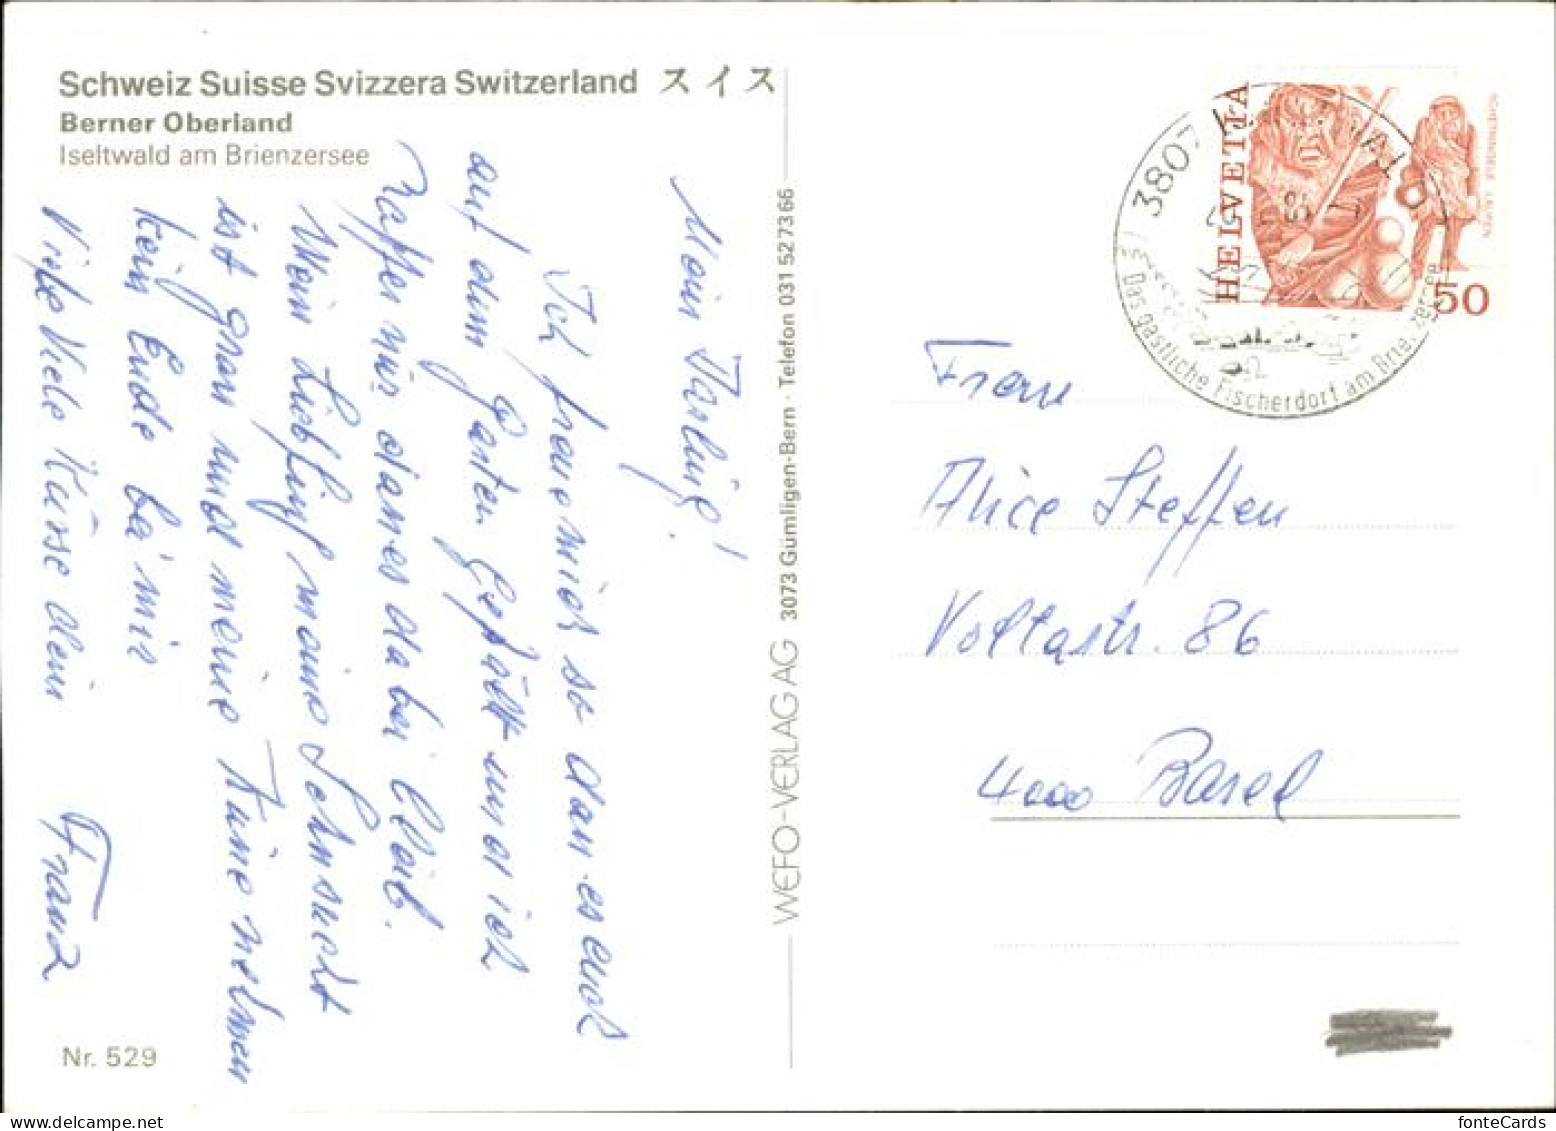 Schweiz Suisse Svizzera Switzerland スイス
Berner Oberland
Iseltwald am Brienzersee
Mein Darling!
Ich freue mich so dan es euch
auf dem Garten gefällt und ich
hoffe nur dan es dabei bleib.
Mein Liebling meine Sehnsucht
ist gron und meine Türe nehmen
kein Ende bä mir
Viele Viele Küsse dein
Franz
Nr. 529
WEFO-VERLAG AG 3073 Gümligen-Bern · Telefon 031 52 73 66
3807 ISELTWALD
Das gastliche Fischerdorf am Brienzersee
HELVETIA
50
Frau
Alice Steffen
Voltastr. 86
4000 Basel
fonteCards